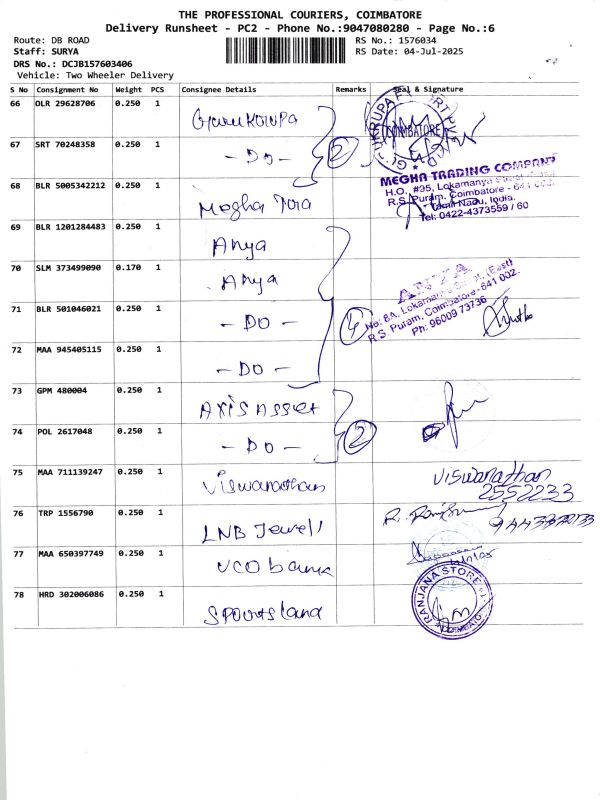 THE PROFESSIONAL COURIERS, COIMBATORE
Delivery Runsheet - PC2 - Phone No.:9047080280 - Page No.:6
Route: DB ROAD RS No.: 1576034
Staff: SURYA RS Date: 04-Jul-2025
DRS No.: DCJB157603406
Vehicle: Two Wheeler Delivery
S No Consignment No Weight PCS Consignee Details Remarks Seal & Signature
66 OLR 29628706 0.250 1 Gurukrupa
67 SRT 70248358 0.250 1 - DO - 2 COIMBATORE
68 BLR 5005342212 0.250 1 Megha Tora
MEGHA TRADING COMPANY
H.O. #95, Lokamanya Street
R.S. Puram, Coimbatore - 641
Tamil Nadu, India.
Tel: 0422-4373559 / 60
69 BLR 1201284483 0.250 1 Anya
70 SLM 373499090 0.170 1 Anya
ANYA
No: 8A, Lokamanya Street, (East)
R.S. Puram, Coimbatore-641 002.
Ph: 96009 73736
71 BLR 501046021 0.250 1 - DO - 4
72 MAA 945405115 0.250 1 - DO -
73 GPM 480004 0.250 1 AXIS ASSET
74 POL 2617048 0.250 1 - DO - 2
75 MAA 711139247 0.250 1 Viswanathan Viswanathan
2552233
76 TRP 1556790 0.250 1 LNB Jewell
77 MAA 650397749 0.250 1 UCO bank
78 HRD 302006086 0.250 1 Sports land RANJANA STORE